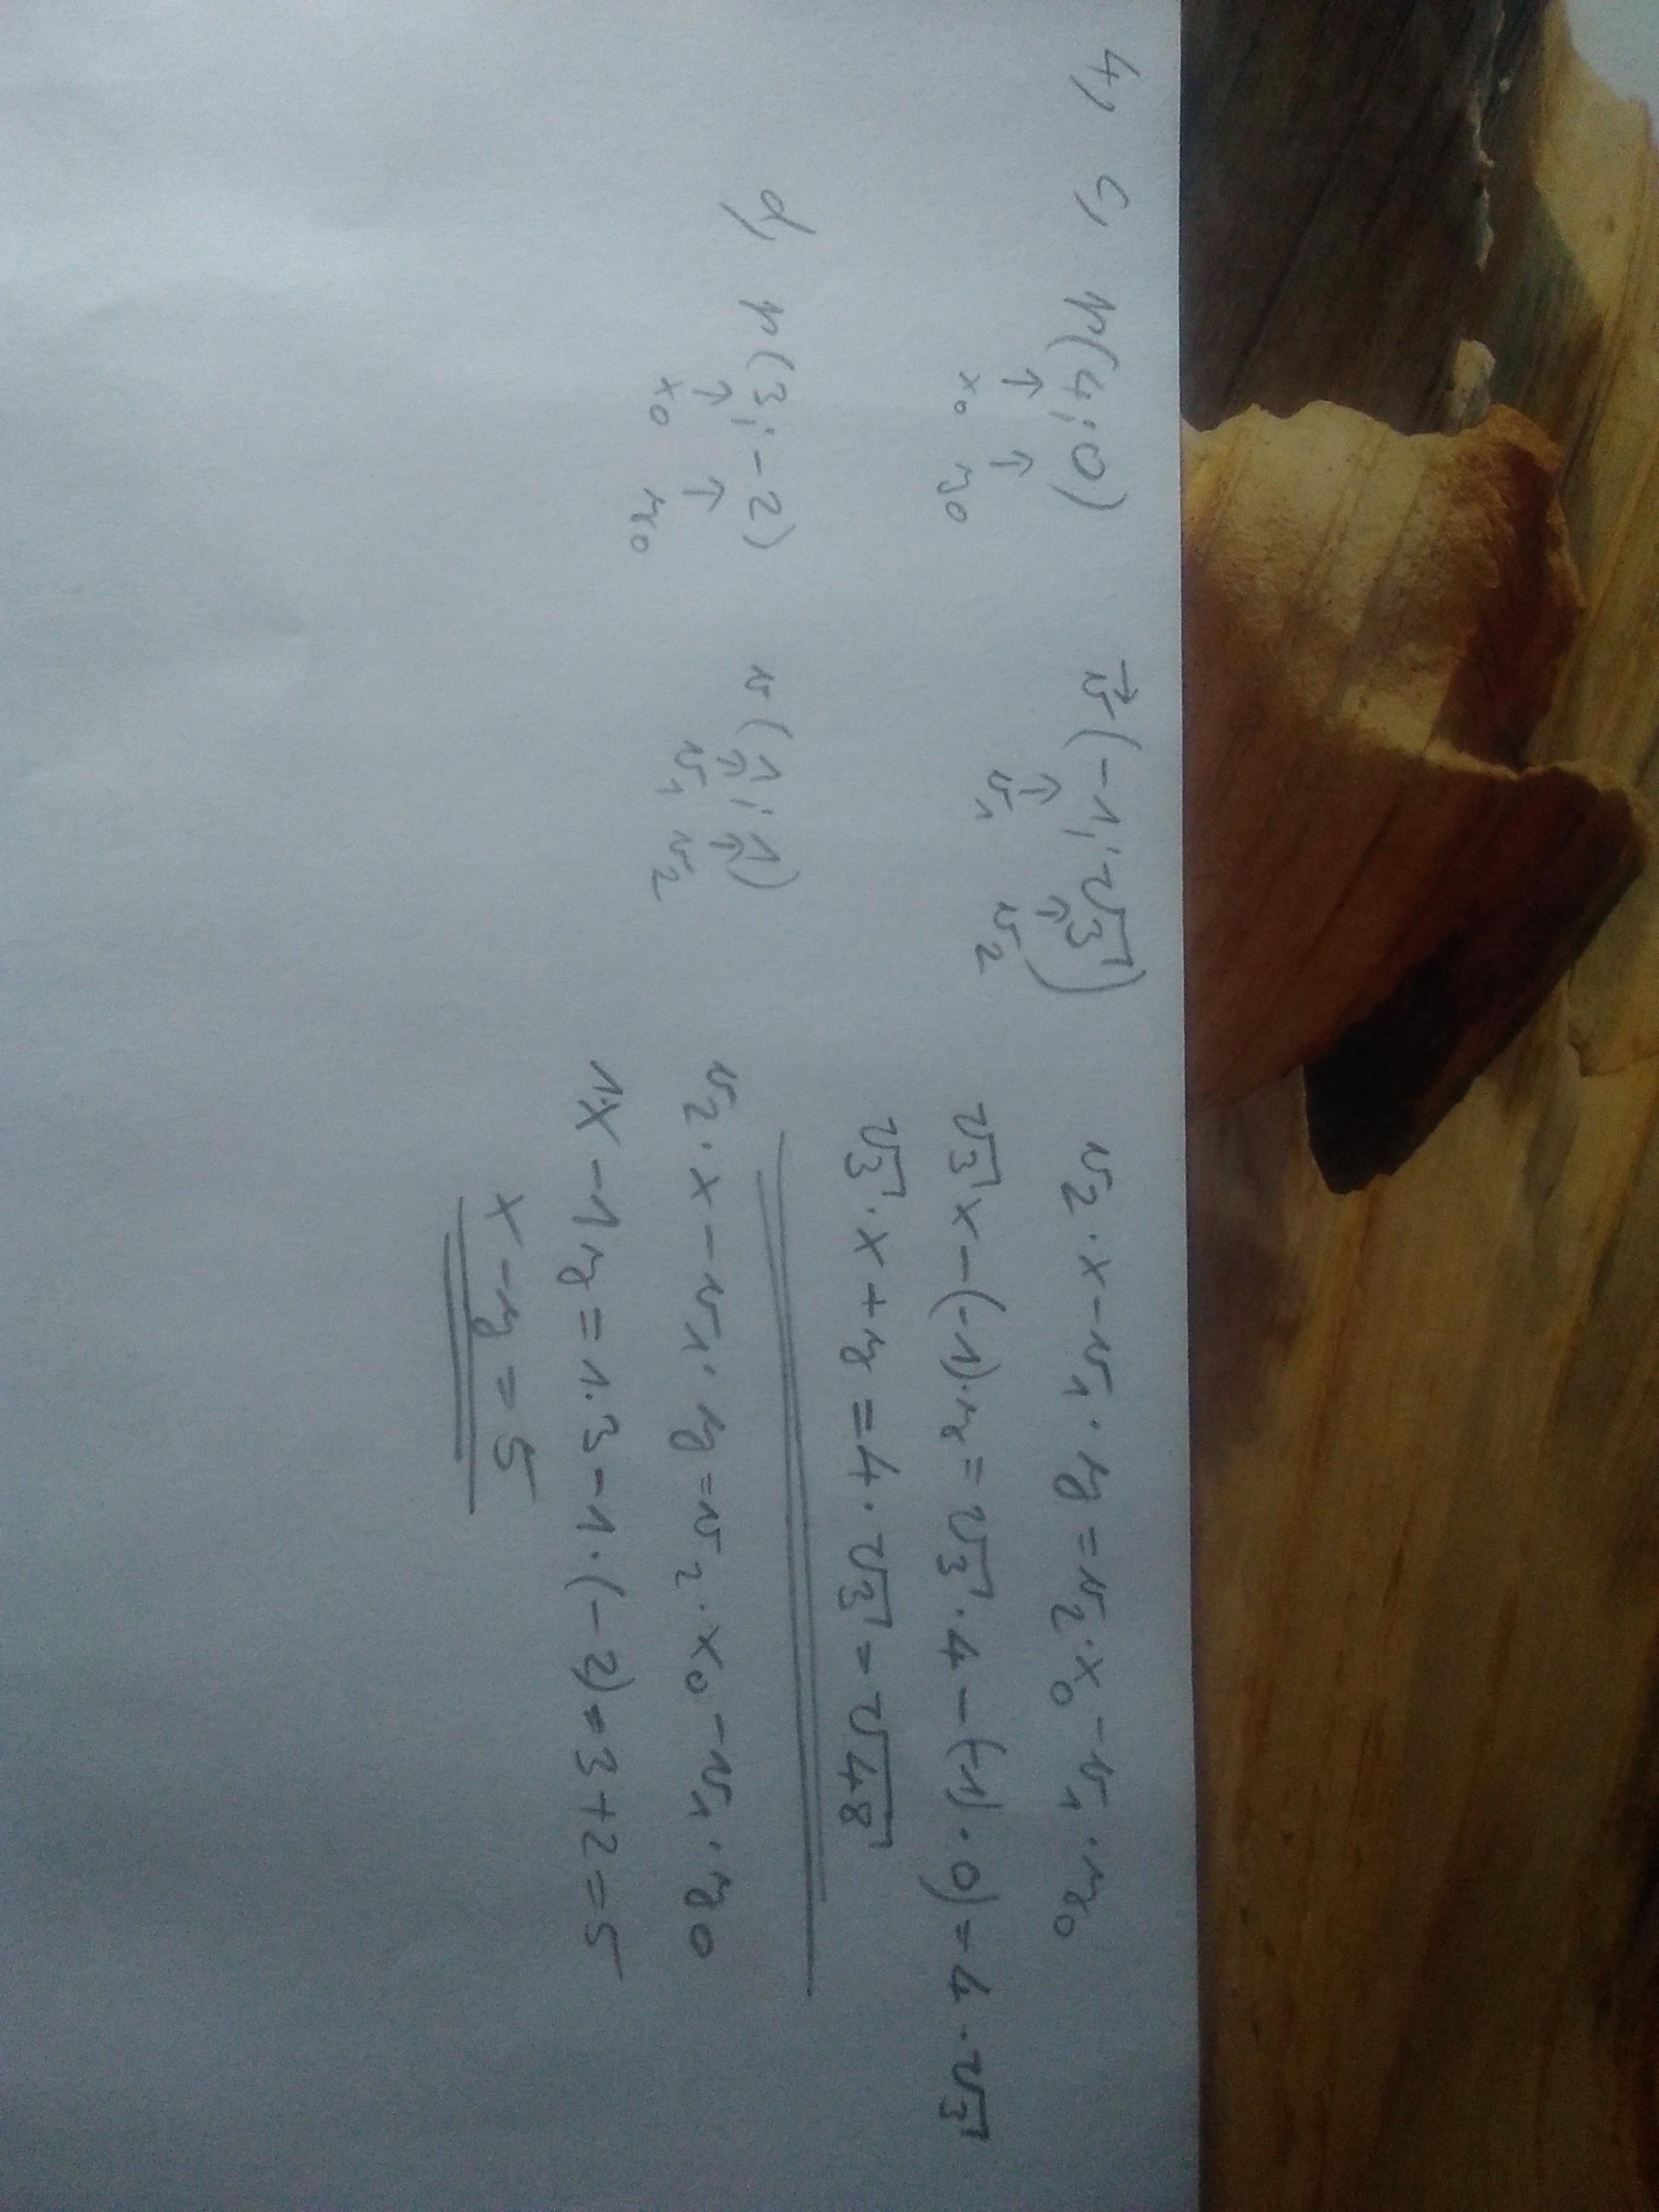 4, c, P(4; 0) v⃗(-1; √3) v₂·x-v₁·y=v₂·x₀-v₁·y₀
↑ ↑ ↑ ↑
x₀ y₀ v₁ v₂
√3x-(-1)·y=√3·4-(-1)·0)=4·√3
√3·x+y=4·√3=√48
d, P(3; -2) v(1; 1) v₂·x-v₁·y=v₂·x₀-v₁·y₀
↑ ↑ ↑ ↑
x₀ y₀ v₁ v₂
1·x-1y=1·3-1·(-2)=3+2=5
x-y=5